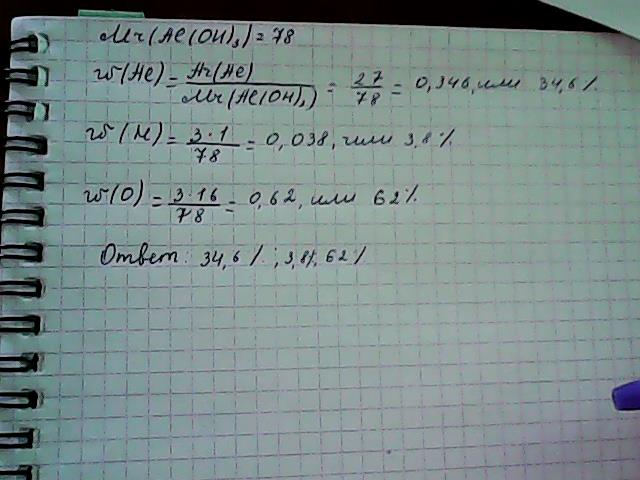 Mr(Al(OH)₃) = 78
w(Al) = Ar(Al) / Mr(Al(OH)₃) = 27/78 = 0,346, или 34,6%
w(H) = 3·1/78 = 0,038, или 3,8%
w(O) = 3·16/78 = 0,62, или 62%
Ответ: 34,6%; 3,8%, 62%